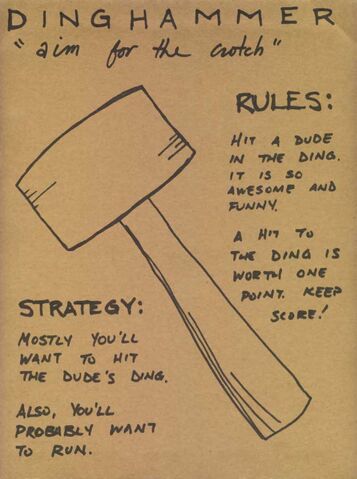 DINGHAMMER
"aim for the crotch"
RULES:
HIT A DUDE
IN THE DING.
IT IS SO
AWESOME AND
FUNNY.
A HIT TO
THE DING IS
WORTH ONE
POINT. KEEP
SCORE!
STRATEGY:
MOSTLY YOU'LL
WANT TO HIT
THE DUDE'S DING.
ALSO, YOU'LL
PROBABLY WANT
TO RUN.